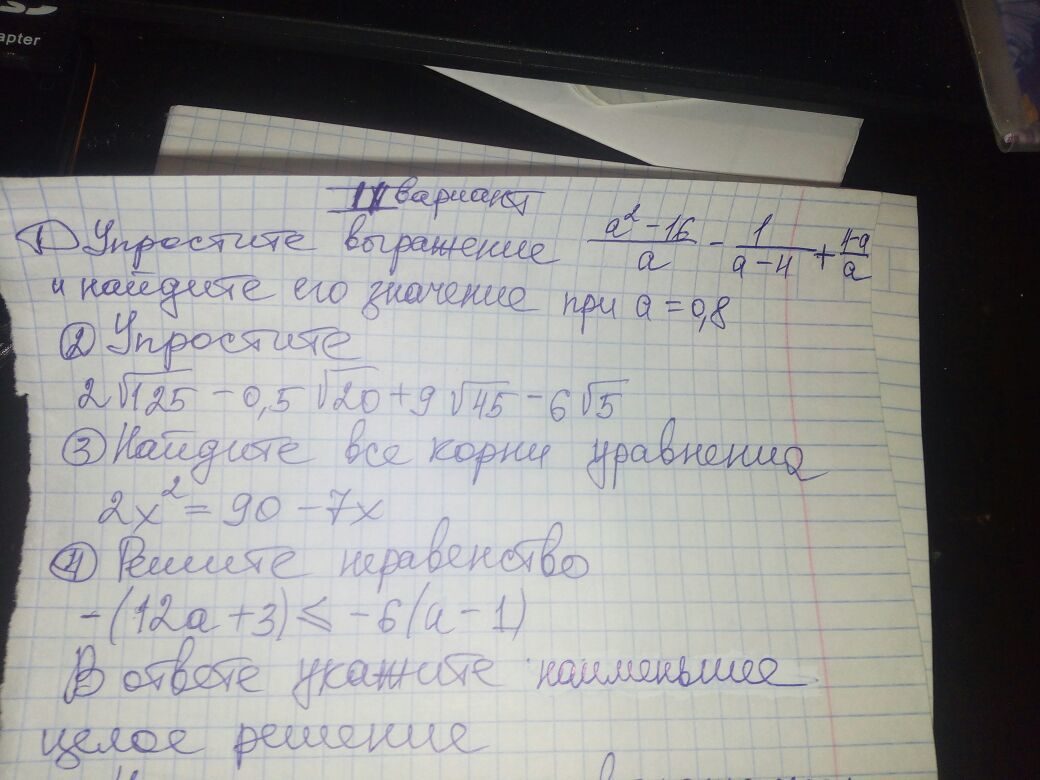 apter
II вариант
1) Упростите выражение (a² - 16)/a - 1/(a - 4) + (4-a)/a
и найдите его значение при a = 0,8
2) Упростите
2√125 - 0,5√20 + 9√45 - 6√5
3) Найдите все корни уравнения
2x² = 90 - 7x
4) Решите неравенство
-(12a + 3) ≤ -6(a - 1)
В ответе укажите наименьшее
целое решение